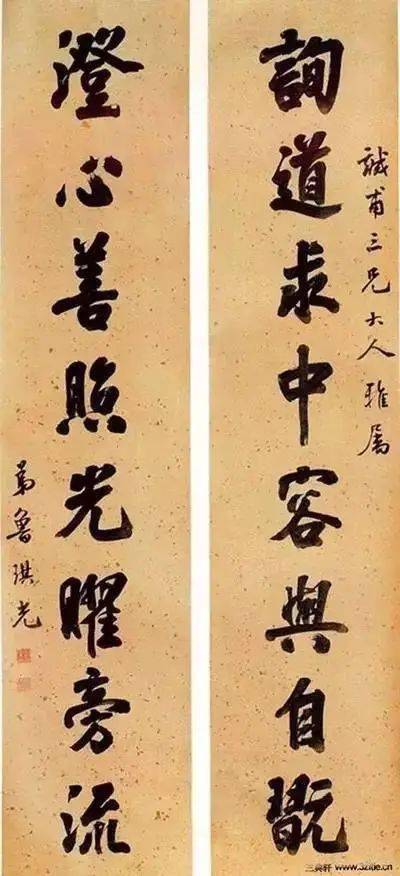 誠甫三兄大人雅屬
詢道求中容與自翫
澄心善照光曜旁流
弟魯琪光
三典轩 www.32jue.cn